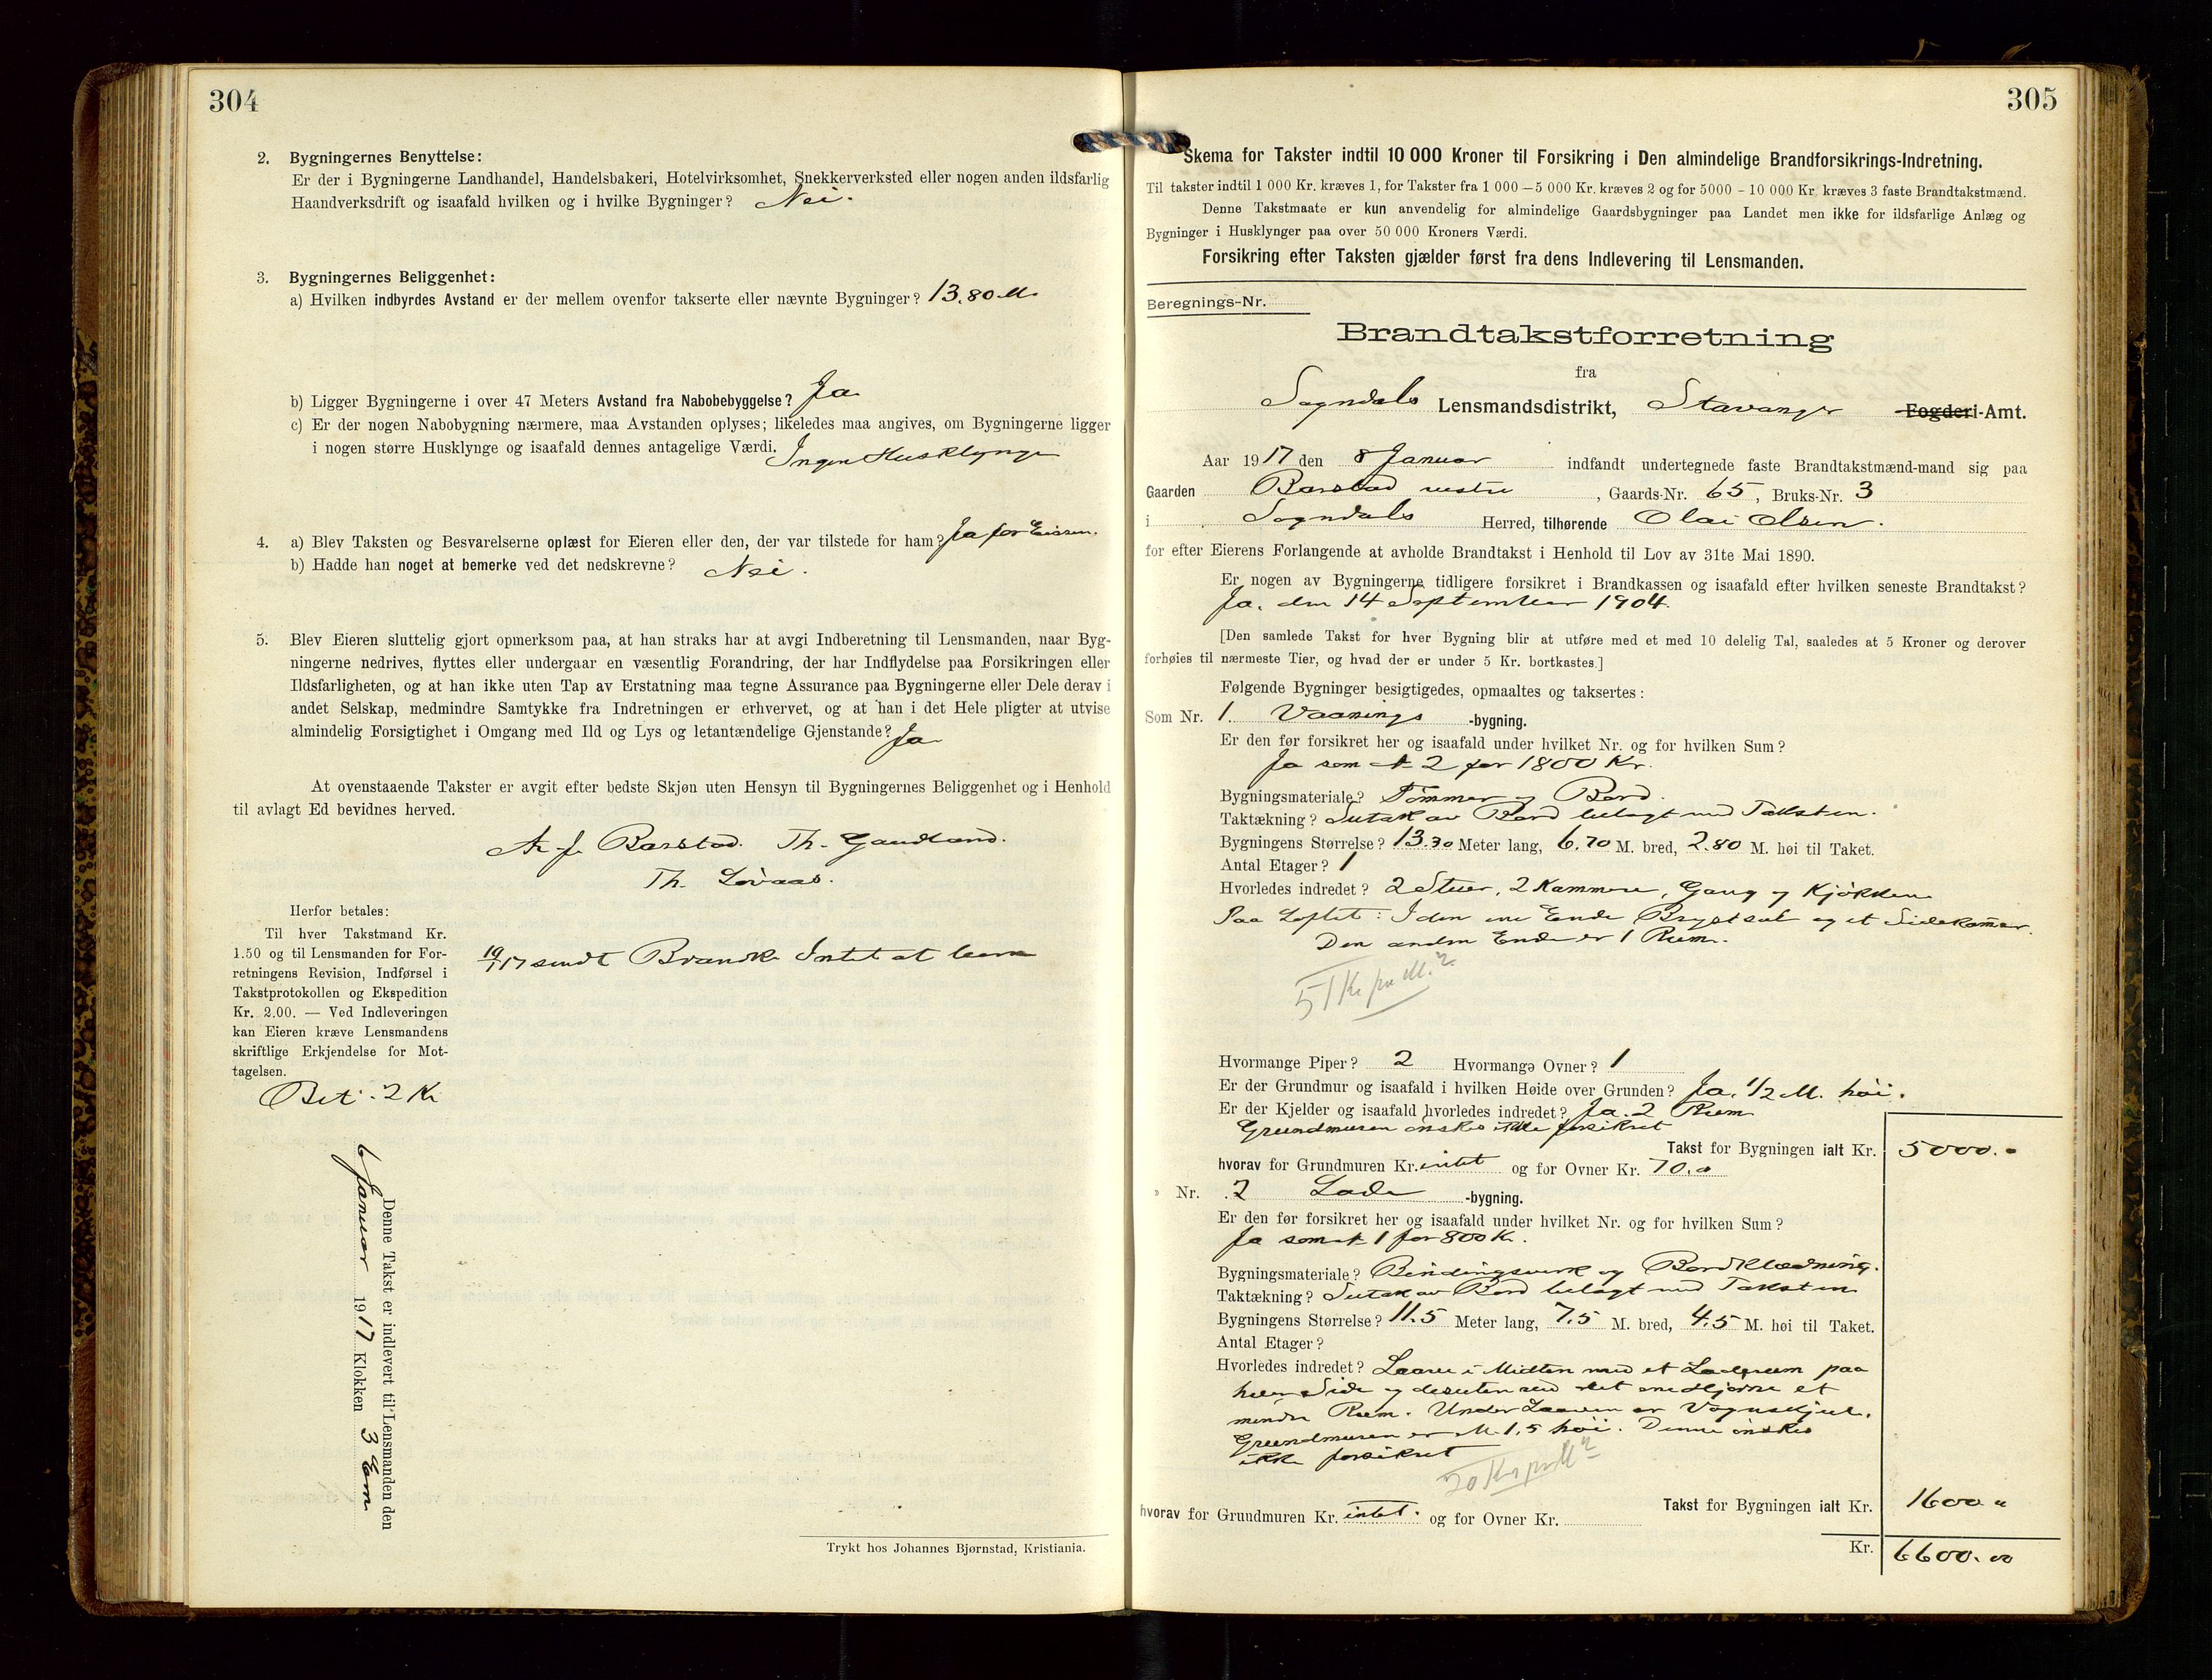 304
2. Bygningernes Benyttelse:
Er der i Bygningerne Landhandel, Handelsbakeri, Hotelvirksomhet, Snekkerverksted eller nogen anden ildsfarlig
Haandverksdrift og isaafald hvilken og i hvilke Bygninger? Nei.
3. Bygningernes Beliggenhet:
a) Hvilken indbyrdes Avstand er der mellem ovenfor takserte eller nævnte Bygninger? 13.80 M.
b) Ligger Bygningerne i over 47 Meters Avstand fra Nabobebyggelse? Ja
c) Er der nogen Nabobygning nærmere, maa Avstanden oplyses; likeledes maa angives, om Bygningerne ligger
i nogen større Husklynge og isaafald dennes antagelige Værdi. Ingen Husklynge
4. a) Blev Taksten og Besvarelserne oplæst for Eieren eller den, der var tilstede for ham? Ja for Eieren.
b) Hadde han noget at bemerke ved det nedskrevne? Nei.
5. Blev Eieren sluttelig gjort opmerksom paa, at han straks har at avgi Indberetning til Lensmanden, naar Byg-
ningerne nedrives, flyttes eller undergaar en væsentlig Forandring, der har Indflydelse paa Forsikringen eller
Ildsfarligheten, og at han ikke uten Tap av Erstatning maa tegne Assurance paa Bygningerne eller Dele derav i
andet Selskap, medmindre Samtykke fra Indretningen er erhvervet, og at han i det Hele pligter at utvise
almindelig Forsigtighet i Omgang med Ild og Lys og letantændelige Gjenstande? Ja
At ovenstaaende Takster er avgit efter bedste Skjøn uten Hensyn til Bygningernes Beliggenhet og i Henhold
til avlagt Ed bevidnes herved.
Barstad. Th. Gaudland.
Th. Løvaas.
Herfor betales:
Til hver Takstmand Kr.
1.50 og til Lensmanden for For-
retningens Revision, Indførsel i
Takstprotokollen og Ekspedition
Kr. 2.00. — Ved Indleveringen
kan Eieren kræve Lensmandens
skriftlige Erkjendelse for Mot-
tagelsen.
19/1 17 sendt Brandk. Intet at bem
Bet. 2 Kr
Denne Takst er indlevert til Lensmanden den
6 Januar 1917 Klokken 3 Em
Trykt hos Johannes Bjørnstad, Kristiania.
305
Skema for Takster indtil 10 000 Kroner til Forsikring i Den almindelige Brandforsikrings-Indretning.
Til takster indtil 1 000 Kr. kræves 1, for Takster fra 1 000 — 5 000 Kr. kræves 2 og for 5000 – 10 000 Kr. kræves 3 faste Brandtakstmænd.
Denne Takstmaate er kun anvendelig for almindelige Gaardsbygninger paa Landet men ikke for ildsfarlige Anlæg og
Bygninger i Husklynger paa over 50 000 Kroners Værdi.
Forsikring efter Taksten gjælder først fra dens Indlevering til Lensmanden.
Beregnings-Nr.
Brandtakstforretning
fra
Sogndals Lensmandsdistrikt, Stavanger Fogderi-Amt.
Aar 1917 den 8 Januar indfandt undertegnede faste Brandtakstmænd-mand sig paa
Gaarden Barstad vestre, Gaards-Nr. 65, Bruks-Nr. 3
i Sogndals Herred, tilhørende Olai Olsen.
for efter Eierens Forlangende at avholde Brandtakst i Henhold til Lov av 31te Mai 1890.
Er nogen av Bygningerne tidligere forsikret i Brandkassen og isaafald efter hvilken seneste Brandtakst?
Ja. den 14 September 1904.
[Den samlede Takst for hver Bygning blir at utføre med et med 10 delelig Tal, saaledes at 5 Kroner og derover
forhøies til nærmeste Tier, og hvad der er under 5 Kr. bortkastes.]
Følgende Bygninger besigtigedes, opmaaltes og taksertes:
Som Nr. 1. Vaanings -bygning.
Er den før forsikret her og isaafald under hvilket Nr. og for hvilken Sum?
Ja som № 2 for 1800 Kr.
Bygningsmateriale? Tømmer og Bord.
Taktækning? Sutak av Bord belagt med Taksten.
Bygningens Størrelse? 13.30 Meter lang, 6.70 M. bred, 2.80 M. høi til Taket.
Antal Etager? 1
Hvorledes indredet? 2 Stuer, 2 Kammere, Gang og Kjøkken
Paa Loftet: I den ene Ende Brystsal og et Sidekammer.
Den anden Ende er 1 Rum.
51 Kr. pr M.²
Hvormange Piper? 2 Hvormange Ovner? 1
Er der Grundmur og isaafald i hvilken Høide over Grunden? Ja, 1/2 M. høi.
Er der Kjelder og isaafald hvorledes indredet? Ja. 2 Rum
Grundmuren ønskes ikke forsikret
Takst for Bygningen ialt Kr. 5000.-
hvorav for Grundmuren Kr. intet og for Ovner Kr. 70.-
» Nr. 2 Lade -bygning.
Er den før forsikret her og isaafald under hvilket Nr. og for hvilken Sum?
Ja som № 1 for 800 Kr.
Bygningsmateriale? Bindingsverk og Bordklædning.
Taktækning? Sutak av Bord belagt med Taksten
Bygningens Størrelse? 11.5 Meter lang, 7.5 M. bred, 4.5 M. høi til Taket.
Antal Etager?
Hvorledes indredet? Laave i Midten med et Laderum paa
hver Side og desuten ved det ene Hjørne et
mindre Rum. Under Laaven er Vognskjul.
Grundmuren er M. 1.5 høi. Denne ønskes
ikke forsikret
20 Kr pr M²
Takst for Bygningen ialt Kr. 1600 "
hvorav for Grundmuren Kr. intet. og for Ovner Kr.
Kr. 6600.00